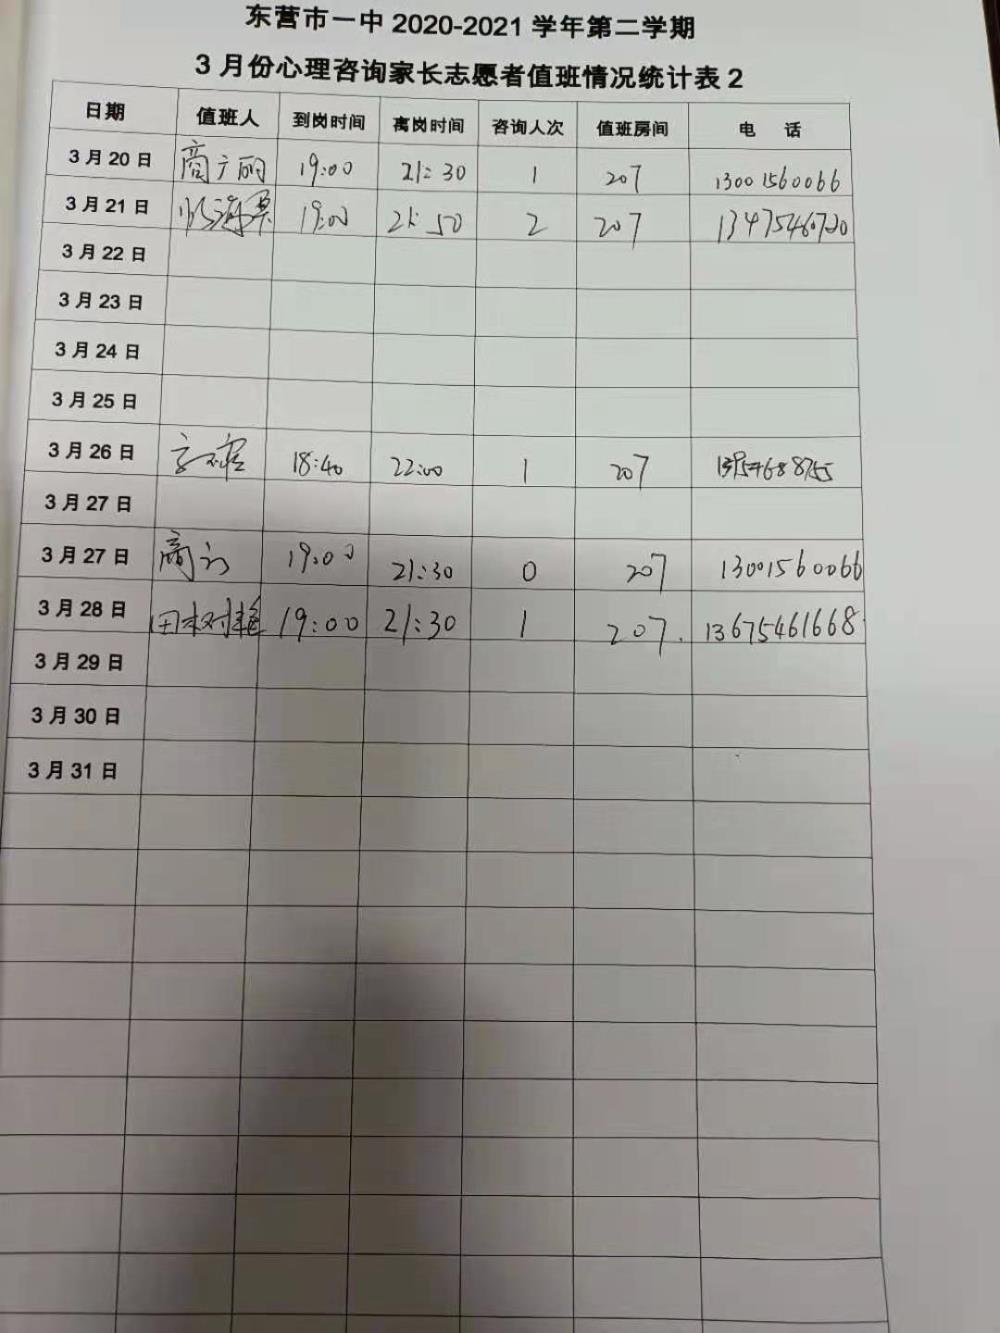 东营市一中 2020-2021 学年第二学期
3 月份心理咨询家长志愿者值班情况统计表 2
日期 值班人 到岗时间 离岗时间 咨询人次 值班房间 电 话
3 月 20 日 商广丽 19:00 21:30 1 207 13001560066
3 月 21 日 19:00 21:50 2 207 13475460720
3 月 22 日
3 月 23 日
3 月 24 日
3 月 25 日
3 月 26 日 18:40 22:00 1 207
3 月 27 日
3 月 27 日 19:00 21:30 0 207 13001560066
3 月 28 日 19:00 21:30 1 207. 13675461668
3 月 29 日
3 月 30 日
3 月 31 日